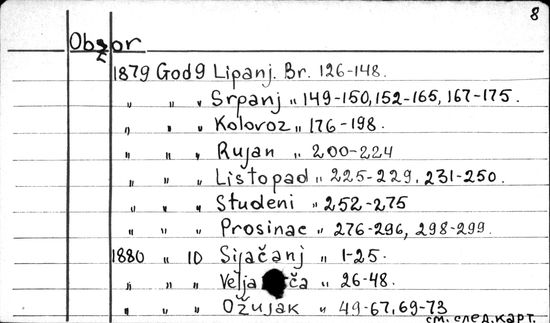 8
Obzor
1879 God 9 Lipanj. Br. 126-148.
" " " Srpanj " 149-150, 152-165, 167-175.
" " " Kolovoz " 176-198.
" " " Rujan " 200-224
" " " Listopad " 225-229, 231-250.
" " " Studeni " 252-275
" " " Prosinac " 276-296, 298-299.
1880 " 10 Siječanj " 1-25.
" " " Velja ča " 26-48.
" " " Ožujak " 49-67, 69-73
см. след. карт.